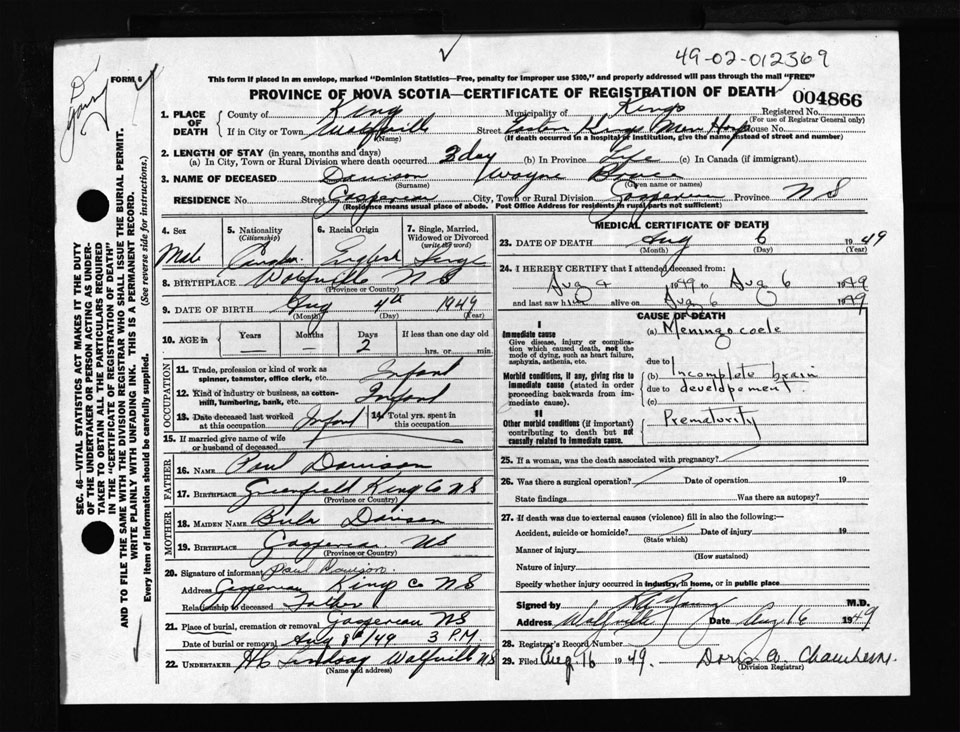 49-02-012369
D
Young
FORM 6
This form if placed in an envelope, marked "Dominion Statistics—Free, penalty for improper use $300," and properly addressed will pass through the mail "FREE"
PROVINCE OF NOVA SCOTIA—CERTIFICATE OF REGISTRATION OF DEATH
004866
1. PLACE OF DEATH
County of Kings
Municipality of Kings
Registered No.
(For use of Registrar General only)
If in City or Town Wolfville
(Name)
Street Eastern Kings Mem Hosp House No.
(If death occurred in a hospital or institution, give the name instead of street and number)
2. LENGTH OF STAY (in years, months and days)
(a) In City, Town or Rural Division where death occurred 2 day (b) In Province Life (c) In Canada (if immigrant)
3. NAME OF DECEASED Davison Wayne Bruce
(Surname) (Given name or names)
RESIDENCE No. Street Gaspereau City, Town or Rural Division Gaspereau Province N S
(Residence means usual place of abode. Post Office Address for residents in rural parts not sufficient)
4. Sex
Male
5. Nationality
(Citizenship)
6. Racial Origin
English
7. Single, Married, Widowed or Divorced
(write the word)
Single
8. BIRTHPLACE Wolfville N S
(Province or Country)
9. DATE OF BIRTH Aug 4th 1949
(Month) (Day) (Year)
10. AGE in Years Months Days If less than one day old
— — 2 hrs. or min.
OCCUPATION
11. Trade, profession or kind of work as spinner, teamster, office clerk, etc. Infant
12. Kind of industry or business, as cotton-mill, lumbering, bank, etc. Infant
13. Date deceased last worked at this occupation Infant
14. Total yrs. spent in this occupation
15. If married give name of wife or husband of deceased
FATHER
16. NAME Paul Davison
17. BIRTHPLACE Greenfield Kings Co NS
(Province or Country)
MOTHER
18. MAIDEN NAME Davison
19. BIRTHPLACE Gaspereau NS
(Province or Country)
20. Signature of informant Paul Davison
Address Gaspereau Kings Co NS
Relationship to deceased Father
21. Place of burial, cremation or removal Gaspereau NS
Date of burial or removal Aug 8th/49 3 P.M.
22. UNDERTAKER H C Lindsay Wolfville NS
(Name and address)
MEDICAL CERTIFICATE OF DEATH
23. DATE OF DEATH Aug 6 1949
(Month) (Day) (Year)
24. I HEREBY CERTIFY that I attended deceased from:
Aug 4 1949 to Aug 6 1949
and last saw him alive on Aug 6 1949
CAUSE OF DEATH
I
Immediate cause
Give disease, injury or complication which caused death, not the mode of dying, such as heart failure, asphyxia, asthenia, etc.
(a) Meningocoele
due to
Morbid conditions, if any, giving rise to immediate cause (stated in order proceeding backwards from immediate cause).
(b) Incomplete brain
due to developement.
(c)
II
Other morbid conditions (if important) contributing to death but not causally related to immediate cause.
Prematurity
25. If a woman, was the death associated with pregnancy?
26. Was there a surgical operation? Date of operation 19
State findings Was there an autopsy?
27. If death was due to external causes (violence) fill in also the following:—
Accident, suicide or homicide? Date of injury 19
(State which)
Manner of injury
(How sustained)
Nature of injury
Specify whether injury occurred in industry, in home, or in public place
Signed by Young M.D.
Address Wolfville Date Aug 16 1949
28. Registrar's Record Number
29. Filed Aug. 16 1949. Doris
(Division Registrar)
SEC. 46—VITAL STATISTICS ACT MAKES IT THE DUTY
OF THE UNDERTAKER OR PERSON ACTING AS UNDER-
TAKER TO OBTAIN ALL THE PARTICULARS REQUIRED
IN THE "CERTIFICATE OF REGISTRATION OF DEATH"
AND TO FILE THE SAME WITH THE DIVISION REGISTRAR WHO SHALL ISSUE THE BURIAL PERMIT.
WRITE PLAINLY WITH UNFADING INK. THIS IS A PERMANENT RECORD.
Every item of information should be carefully supplied. (See reverse side for instructions.)